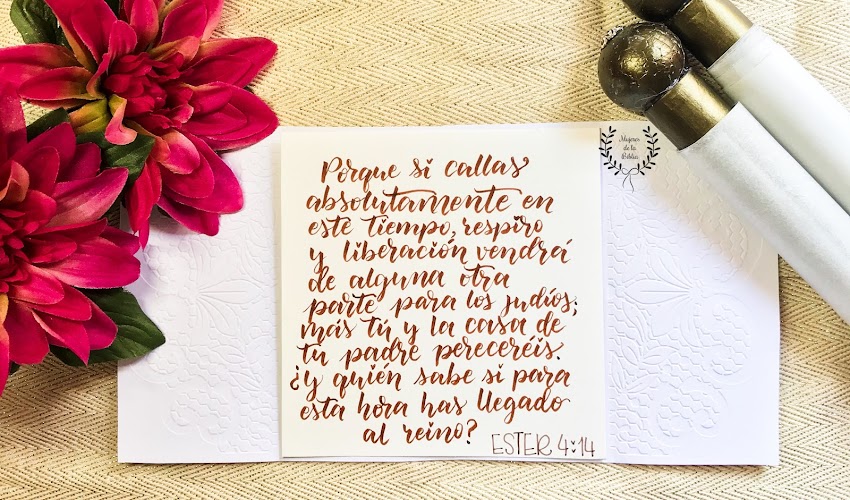 Mujeres
de la
Biblia
Porque si callas
absolutamente en
este tiempo, respiro
y liberación vendrá
de alguna otra
parte para los judíos;
más tú y la casa de
tu padre pereceréis.
¿Y quién sabe si para
esta hora has llegado
al reino?
ESTER 4:14